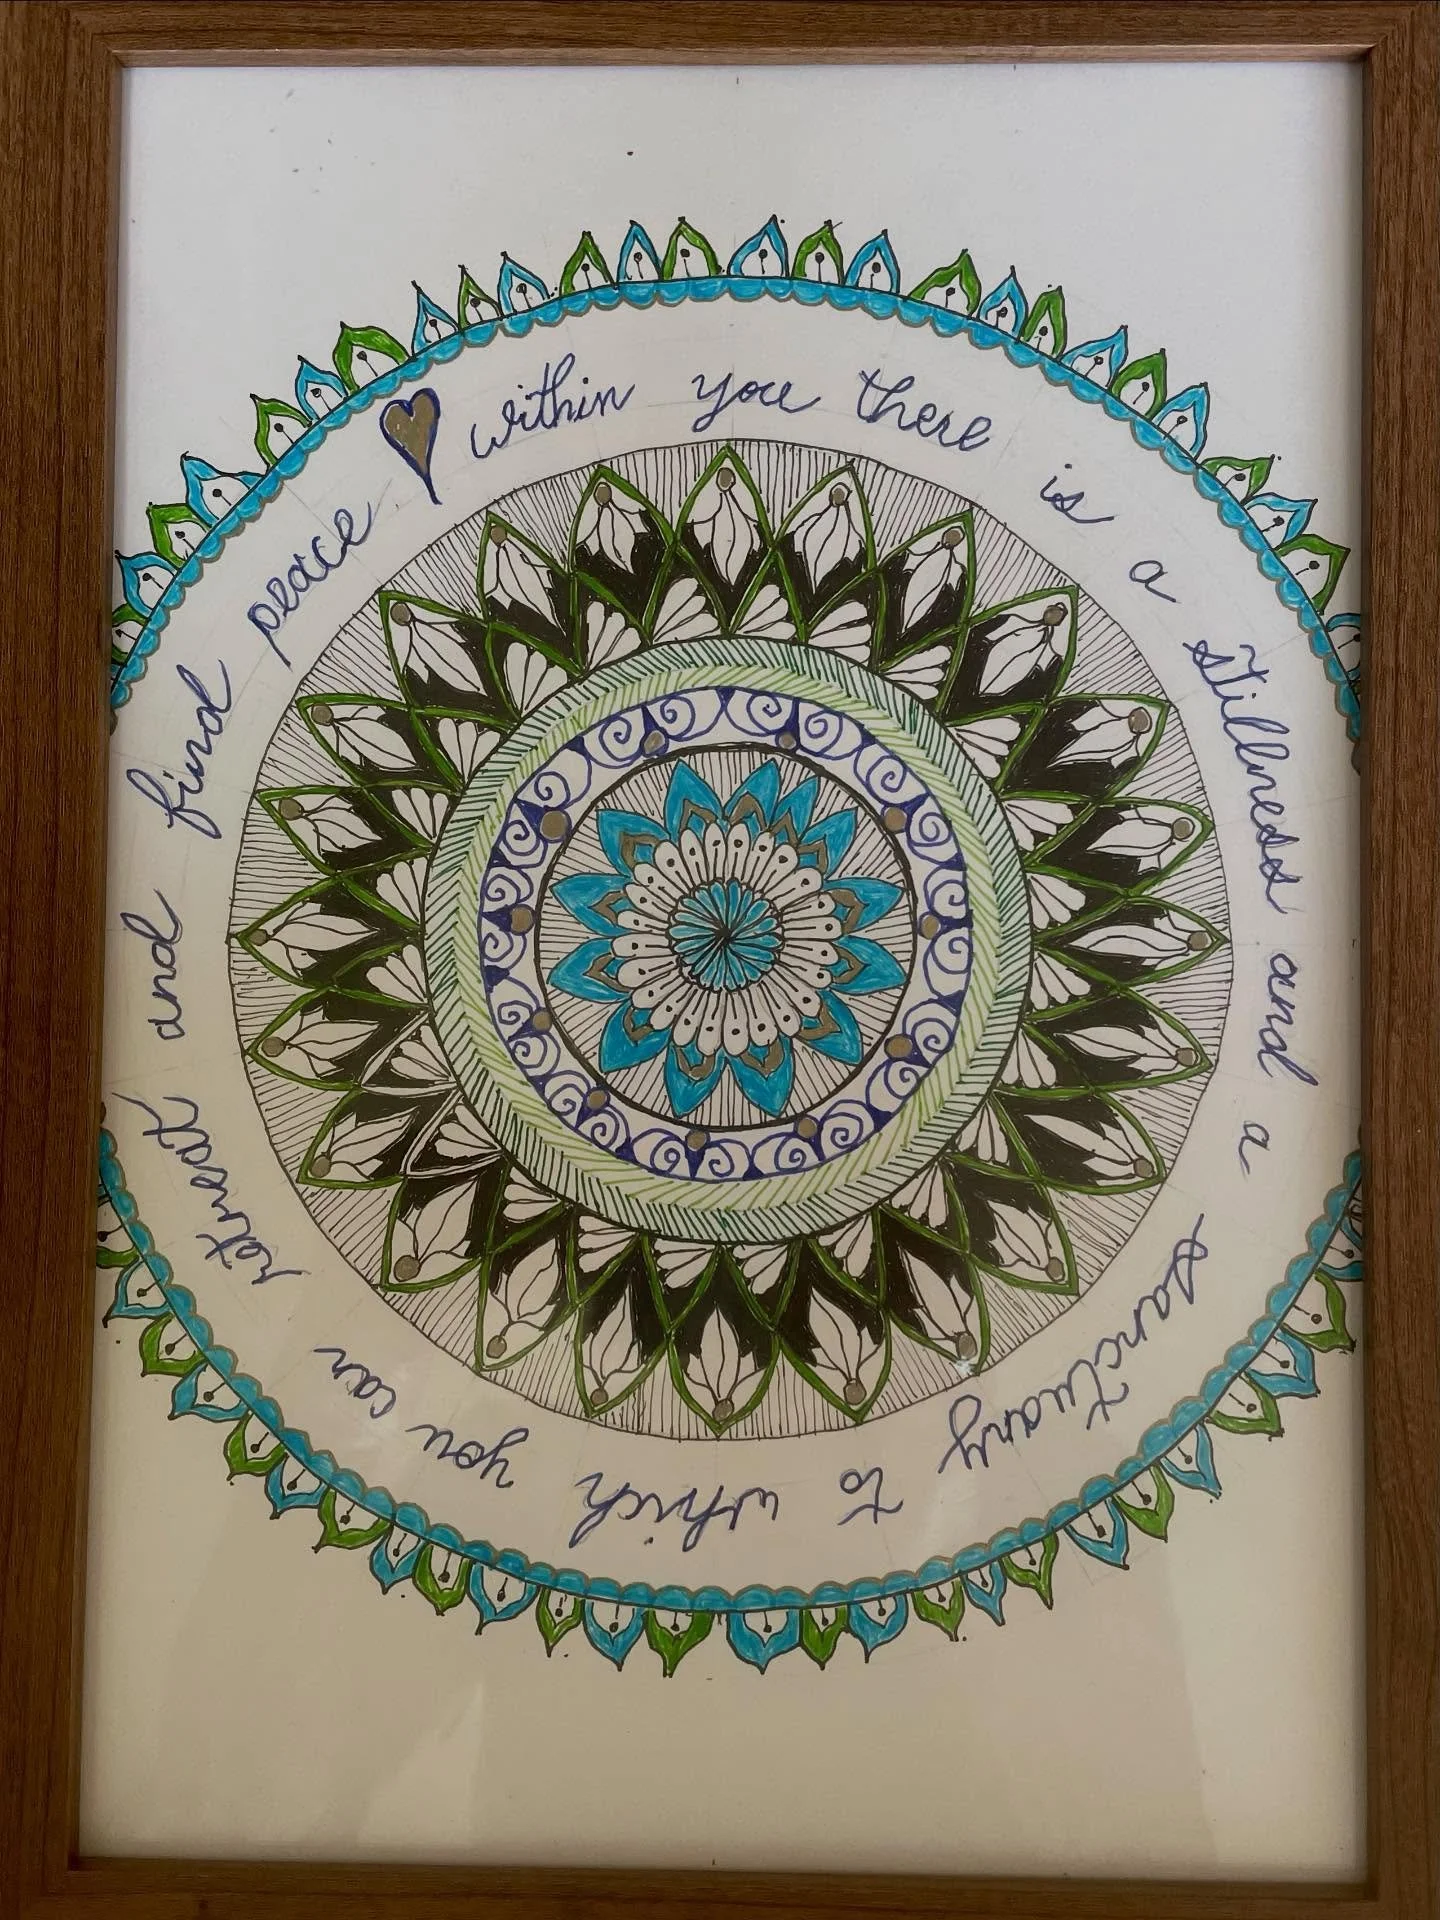 within you there is a stillness and a sanctuary to which you can retreat and find peace